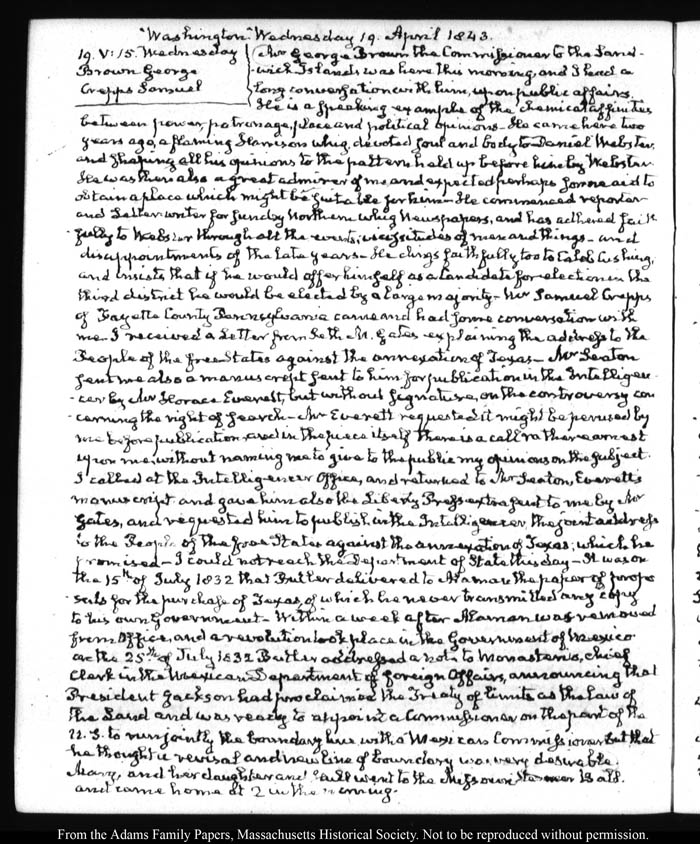 "Washington Wednesday 19. April 1843.
19. V: 15. Wednesday
Brown George
Crepps Samuel
Mr George Brown the Commissioner to the Sand-
wich Islands was here this morning, and I had a
long conversation with him, upon public affairs.
He is a speaking example of the chemical affinities
between power, patronage, place and political opinions. He came here two
years ago, a flaming Harrison whig, devoted soul and body to Daniel Webster,
and shaping all his opinions to the pattern held up before him by Webster
He was then also a great admirer of me and expected perhaps some aid to
obtain a place which might be suitable for him. He commenced reporter
and Letter writer for sundry Northern whig Newspapers, and has adhered faith-
fully to Webster through all the vicissitudes of men and things- and
disappointments of the late years- He clings faithfully too to Caleb Cushing,
and insists that if he would offer himself as a Candidate for election in the
third district he would be elected by a large majority- Mr Samuel Crepps
of Fayette County Pennsylvania came and had some conversation with
me. I received a Letter from Seth M. Gates explaining the address to the
People of the free States against the annexation of Texas- Mr Seaton
sent me also a manuscript sent to him for publication in the Intelligen-
-cer by Mr Horace Everett, but without signature, on the controversy con
-cerning the right of search- Mr Everett requested it might be perused by
me before publication and in the piece itself there is a call rather earnest
upon me, without naming me to give to the public my opinions on the subject.
I called at the Intelligencer Office, and returned to Mr Seaton, Everett's
manuscript and gave him also the Liberty Press extra sent to me by Mr
Gates, and requested him to publish in the Intelligencer, the joint address
to the People of the free States against the annexation of Texas; which he
promised- I could not reach the Department of State this day- It was on
the 15th of July 1832 that Butler delivered to Alaman the paper of propo
-sals for the purchase of Texas, of which he never transmitted any copy
to his own Government- Within a week after Alaman was removed
from Office, and a revolution took place in the Government of Mexico
on the 25th of July 1832 Butler addressed a note to Monasterio, chief
Clerk in the Mexican Department of foreign Affairs, announcing that
President Jackson had proclaimed the Treaty of limits as the Law of
the Land and was ready to appoint a Commissioner on the part of the
U.S. to run jointly the boundary line with a Mexican Commissioner but that
he thought a revisal and new line of boundary was very desirable.
Mary, and her daughter and went to the Ball.
and came home at 2 in the morning.
From the Adams Family Papers, Massachusetts Historical Society. Not to be reproduced without permission.